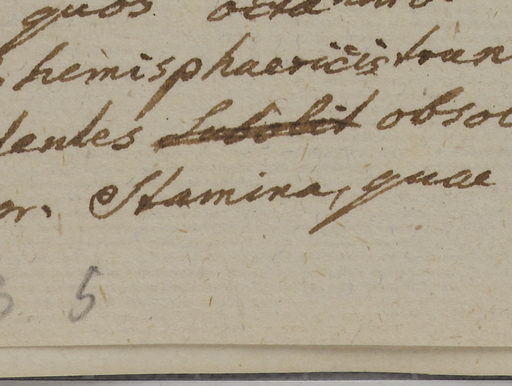 quos
hemisphaericis trun
dentes obsol
or. Stamina, quae
5